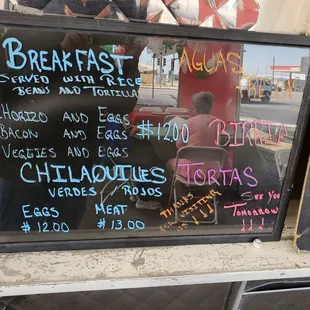 BREAKFAST
SERVED WITH RICE
BEANS AND TORTILLA
AGUAS
CHORIZO AND EGGS
BACON AND EGGS
VEGGIES AND EGGS
$12.00
BIRRIA
CHILAQUILES
VERDES ROJOS
TORTAS
EGGS MEAT
$12.00 $13.00
THANKS
FOR VISITING
SEE YOU
TOMORROW